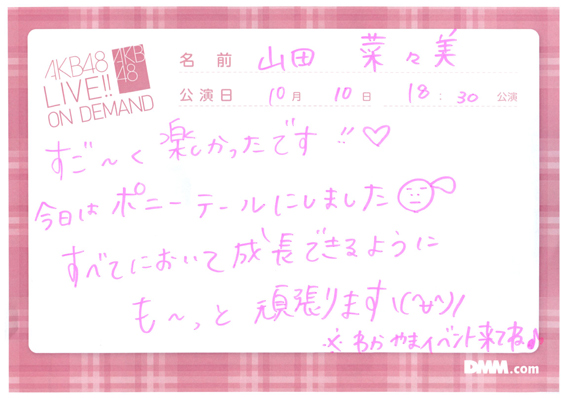 AKB48
LIVE!!
ON DEMAND
AKB
48
名前 山田 菜々美
公演日 10月 10日 18:30 公演
すご〜く楽しかったです!!♡
今日はポニーテールにしました
すべてにおいて成長できるように
も〜っと頑張ります\(^∀^)/
※わかやまイベント来てね♪
DMM.com